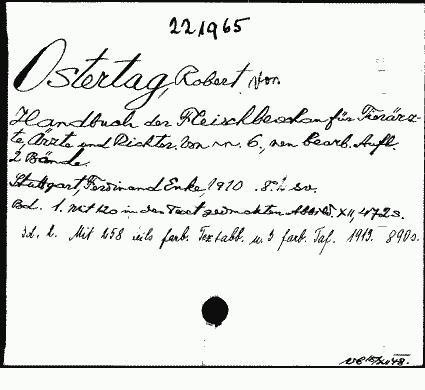 221965
Ostertag, Robert von
Handbuch der Fleischbeschau für Tierärz-
te, Ärzte und Richter. Von 6., neu bearb. Aufl.
2 Bände.
Stuttgart, Ferdinand Enke 1910. 8°.
Bd. 1. Mit 120 in den Text gedruckten Abbild. XII, 472 S.
Bd. 2. Mit 258 teils farb. Textabb. u. 3 farb. Taf. 1913. 890 S.